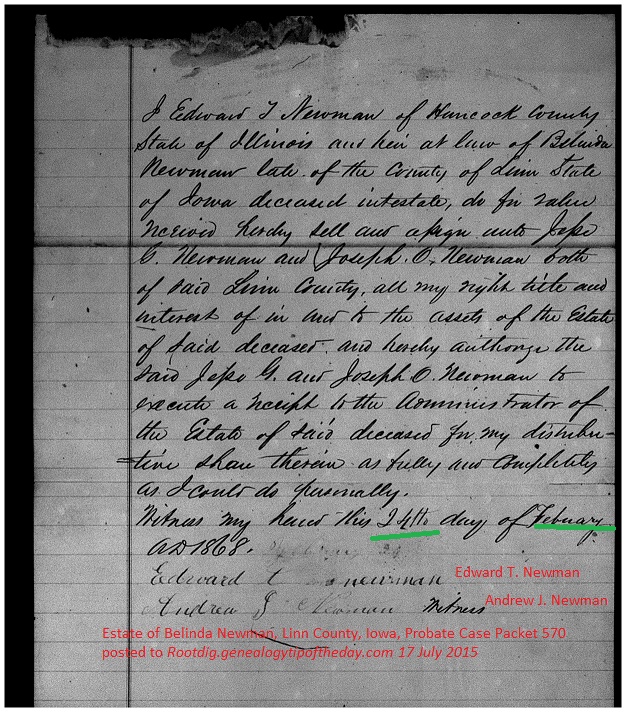 I Edward T Newman of Hancock County
State of Illinois and heir at law of Belinda
Newman late of the County of Linn State
of Iowa deceased intestate, do for value
received hereby sell and assign unto Jesse
G. Newman and Joseph. O. Newman both
of said Linn County, all my right title and
interest of in and to the assets of the Estate
of said deceased and hereby authorize the
said Jesse G. and Joseph O. Newman to
execute a receipt to the Administrator of
the Estate of said deceased for my distribu-
tive share therein as fully and completely
as I could do personally.
Witness my hand this 24th day of Febuary
AD 1868.
Edward t newman Edward T. Newman
Andrew J Newman Witness Andrew J. Newman
Estate of Belinda Newman, Linn County, Iowa, Probate Case Packet 570
posted to Rootdig.genealogytipoftheday.com 17 July 2015